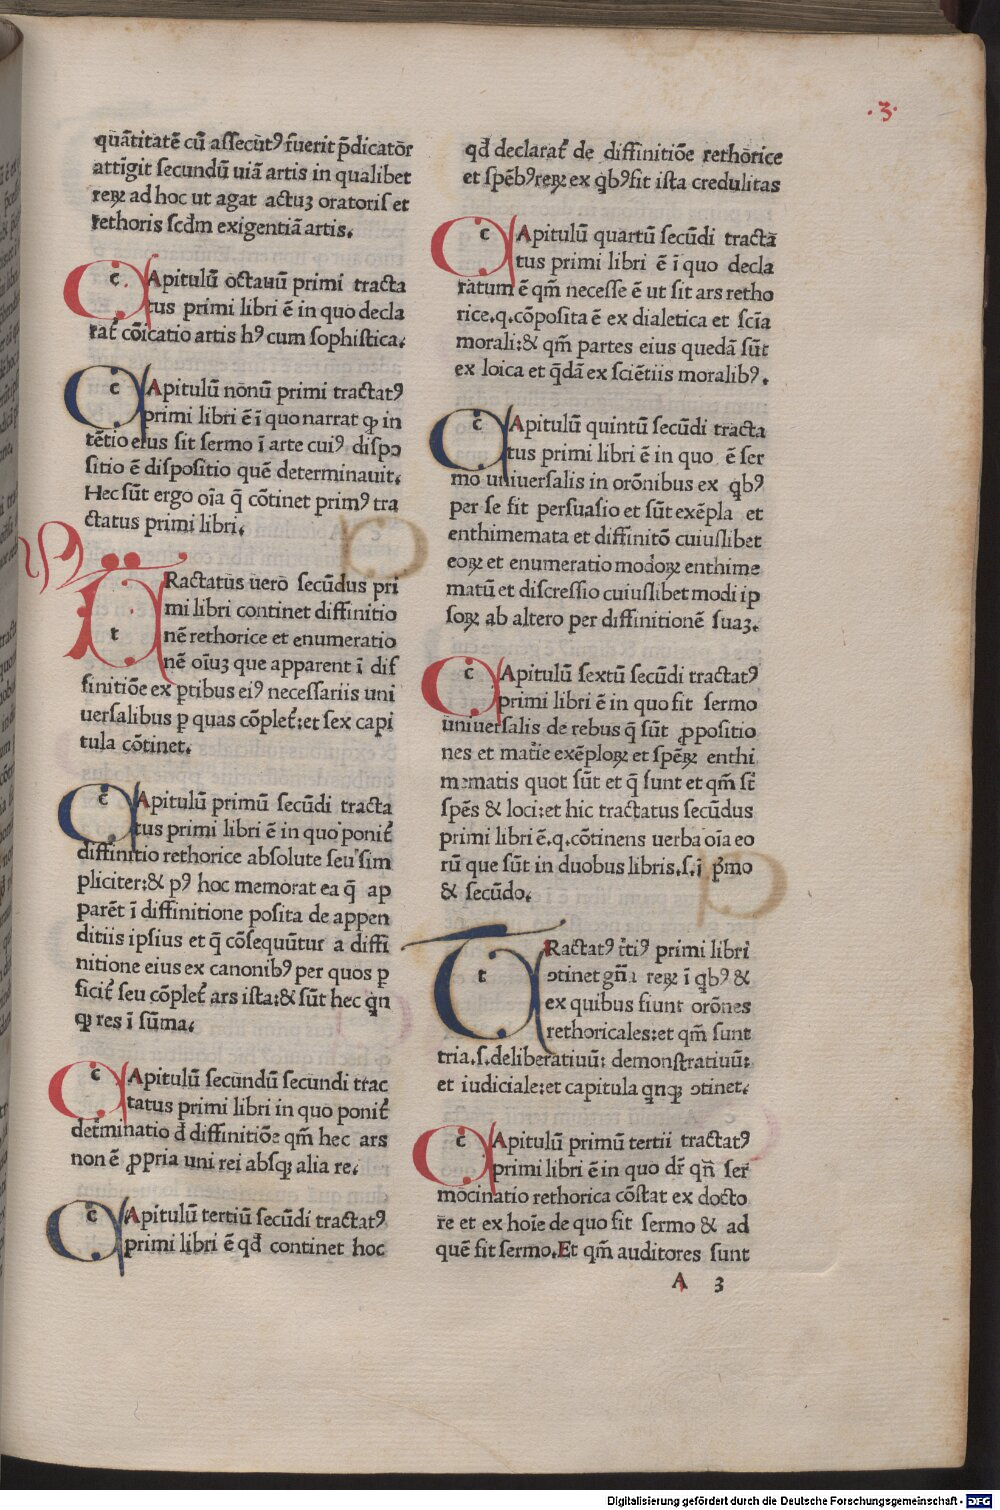 .3.
quātitatē cū assecut⁹ fuerit p̄dicator
attīgit secundū uiā artis in qualibet
reꝝ ad hoc ut agat actuꝫ oratoris et
rethoris scd̄m exigentiā artis.
cApitulū octauū primi tracta
tus primi libri ē in quo decla
rat᷑ cōīcatio artis h⁹ cum sophistica.
cApitulū nonū primi tractat⁹
primi libri ē ī quo narrat ꝙ in
tētio eius sit sermo ī arte cui⁹ dispo
sitio ē dispositio quē determinauit.
Hec sūt ergo oīa q̄ cōtinet prim⁹ tra
ctatus primi libri.
tRactatus uero secūdus pri
mi libri continet diffinitio
nē rethorice et enumeratio
nē oīuꝫ que apparent ī dif
finitiōe ex ꝑtibus ei⁹ necessariis uni
uersalibus ꝑ quas cōplet᷑: et sex capi
tula cōtinet.
cApitulū primū secūdi tracta
tus primi libri ē in quo ponit᷑
diffinitio rethorice absolute seu sim
pliciter: & p⁹ hoc memorat ea q̄ ap
parēt ī diffinitione posita de appen
ditiis ipsius et q̄ cōsequūtur a diffi
nitione eius ex canonib⁹ per quos ꝑ
ficit᷑ seu cōplet᷑ ars ista: & sūt hec qn̄
qꝫ res ī sūma.
cApitulū secundū secundi trac
tatus primi libri in quo ponit᷑
det᷑minatio d̄ diffinitiōe qm̄ hec ars
non ē ꝓpria uni rei absqꝫ alia re.
cApitulū tertiū secūdi tractat⁹
primi libri ē qd̄ continet hoc
qd̄ declarat᷑ de diffinitiōe rethorice
et spēb⁹ reꝝ ex qb⁹ fit ista credulitas
cApitulū quartū secūdi tracta
tus primi libri ē ī quo decla
ratum ē qm̄ necesse ē ut sit ars retho
rice.q.cōposita ē ex dialetica et scīa
morali: & qm̄ partes eius quedā sūt
ex loica et qdā ex sciētiis moralib⁹.
cApitulū quintū secūdi tracta
tus primi libri ē in quo ē ser
mo uniuersalis in orōnibus ex qb⁹
per se fit persuasio et sūt exēpla et
enthimemata et diffinitō cuiuslibet
eoꝝ et enumeratio modoꝝ enthime
matū et discressio cuiuslibet modi ip
soꝝ ab altero per diffinitionē suaꝫ.
cApitulū sextū secūdi tractat⁹
primi libri ē in quo fit sermo
uniuersalis de rebus q̄ sūt ꝓpositio
nes et mat᷑ie exēploꝝ et spēꝝ enthi
mematis quot sūt et q̄ sunt et qm̄ st̄
spēs & loci: et hic tractatus secūdus
primi libri ē.q.cōtinens uerba oīa eo
rū que sūt in duobus libris.s.ī p͛mo
& secūdo.
tRactat⁹ t͛ti⁹ primi libri
ↄtinet gn̄a reꝝ ī qb⁹ &
ex quibus fiunt orōnes
rethoricales: et qm̄ sunt
tria.s.deliberatiuū: demonstratiuū:
et iudiciale: et capitula qnqꝫ ↄtinet.
cApitulū primū tertii tractat⁹
primi libri ē in quo dr̄ qn̄ ser
mocinatio rethorica cōstat ex docto
re et ex hoīe de quo fit sermo & ad
quē fit sermo. Et qm̄ auditores sunt
A 3
Digitalisierung gefördert durch die Deutsche Forschungsgemeinschaft - DFG